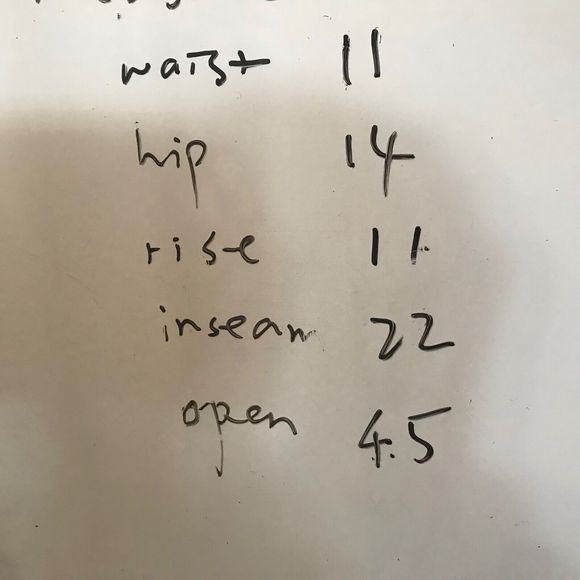 waist 11
hip 14
rise 11
inseam 22
open 4.5